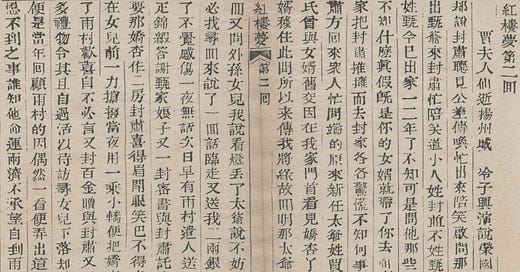 紅樓夢第二回
賈夫人仙逝揚州城 冷子興演說榮國
却說封肅聽見公差傳喚忙出來陪笑啟問那
出甄爺來封肅忙陪笑道小人姓封並不姓甄
姓甄今已出家一二年了不知可是問他那些
不知什麽眞假旣是你的女婿就帶了你去面
家把封肅推擁而去封家各各驚慌不知何事
肅方回來衆人忙問端的原來新任太爺姓賈
氏曾與女婿舊交因在我家門首看見嬌杏丫
婿移住此間所以來傳我將緣故回明那太爺
紅樓夢 第二回
而又問外孫女兒我說看燈丢了太爺說不妨
必找尋回來說了一回話臨走又送我二兩銀
了不覺感傷一夜無話次日早有雨村遣人送
疋錦緞答謝甄家娘子又一封密書與封肅託
要那嬌杏作二房封肅喜得眉開眼笑巴不得
在女兒前一力攛掇當夜用一乘小轎便把嬌
了雨村歡喜自不必言又封百金贈與封肅又
多禮物令其且自過活以待訪尋女兒下落却
便是當年回顧雨村的因偶然一看便弄出這
想不到之事誰知他命運兩濟不承望自到雨